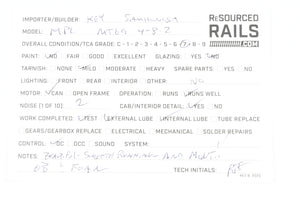 IMPORTER/BUILDER: KEY
ReSOURCED
RAILS
.COM
MODEL: 4-8-2
OVERALL CONDITION/TCA GRADE: C - 1 - 2 - 3 - 4 - 5 - 6 - 7 - 8 - 9
PAINT: NO FAIR GOOD EXCELLENT GLAZING YES NO
TARNISH: NONE MILD MODERATE HEAVY SPARE PARTS: YES NO
LIGHTING: FRONT REAR INTERIOR OTHER: NO
MOTOR: CAN OPEN FRAME OPERATION: RUNS RUNS WELL
NOISE (1 OF 10) 2 CAB/INTERIOR DETAIL: YES NO
WORK COMPLETED: TEST EXTERNAL LUBE INTERNAL LUBE TUBE REPLACE
GEARS/GEARBOX REPLACE ELECTRICAL MECHANICAL SOLDER REPAIRS
CONTROL: DC DCC SOUND SYSTEM:
NOTES: SMOOTH RUNNING AND
TECH INITIALS: